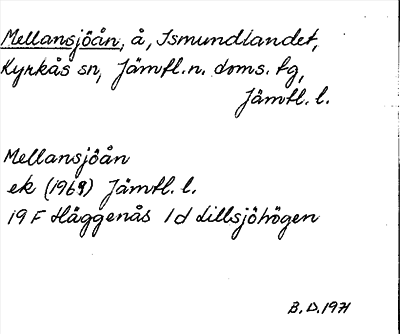 Mellansjöån, å, Ismundlandet,
Kyrkås sn, Jämtl.n. doms. tg,
Jämtl. l.
Mellansjöån
ek (1969) Jämtl. l.
19 F Häggenås 1d Lillsjöhögen
B.D.1971